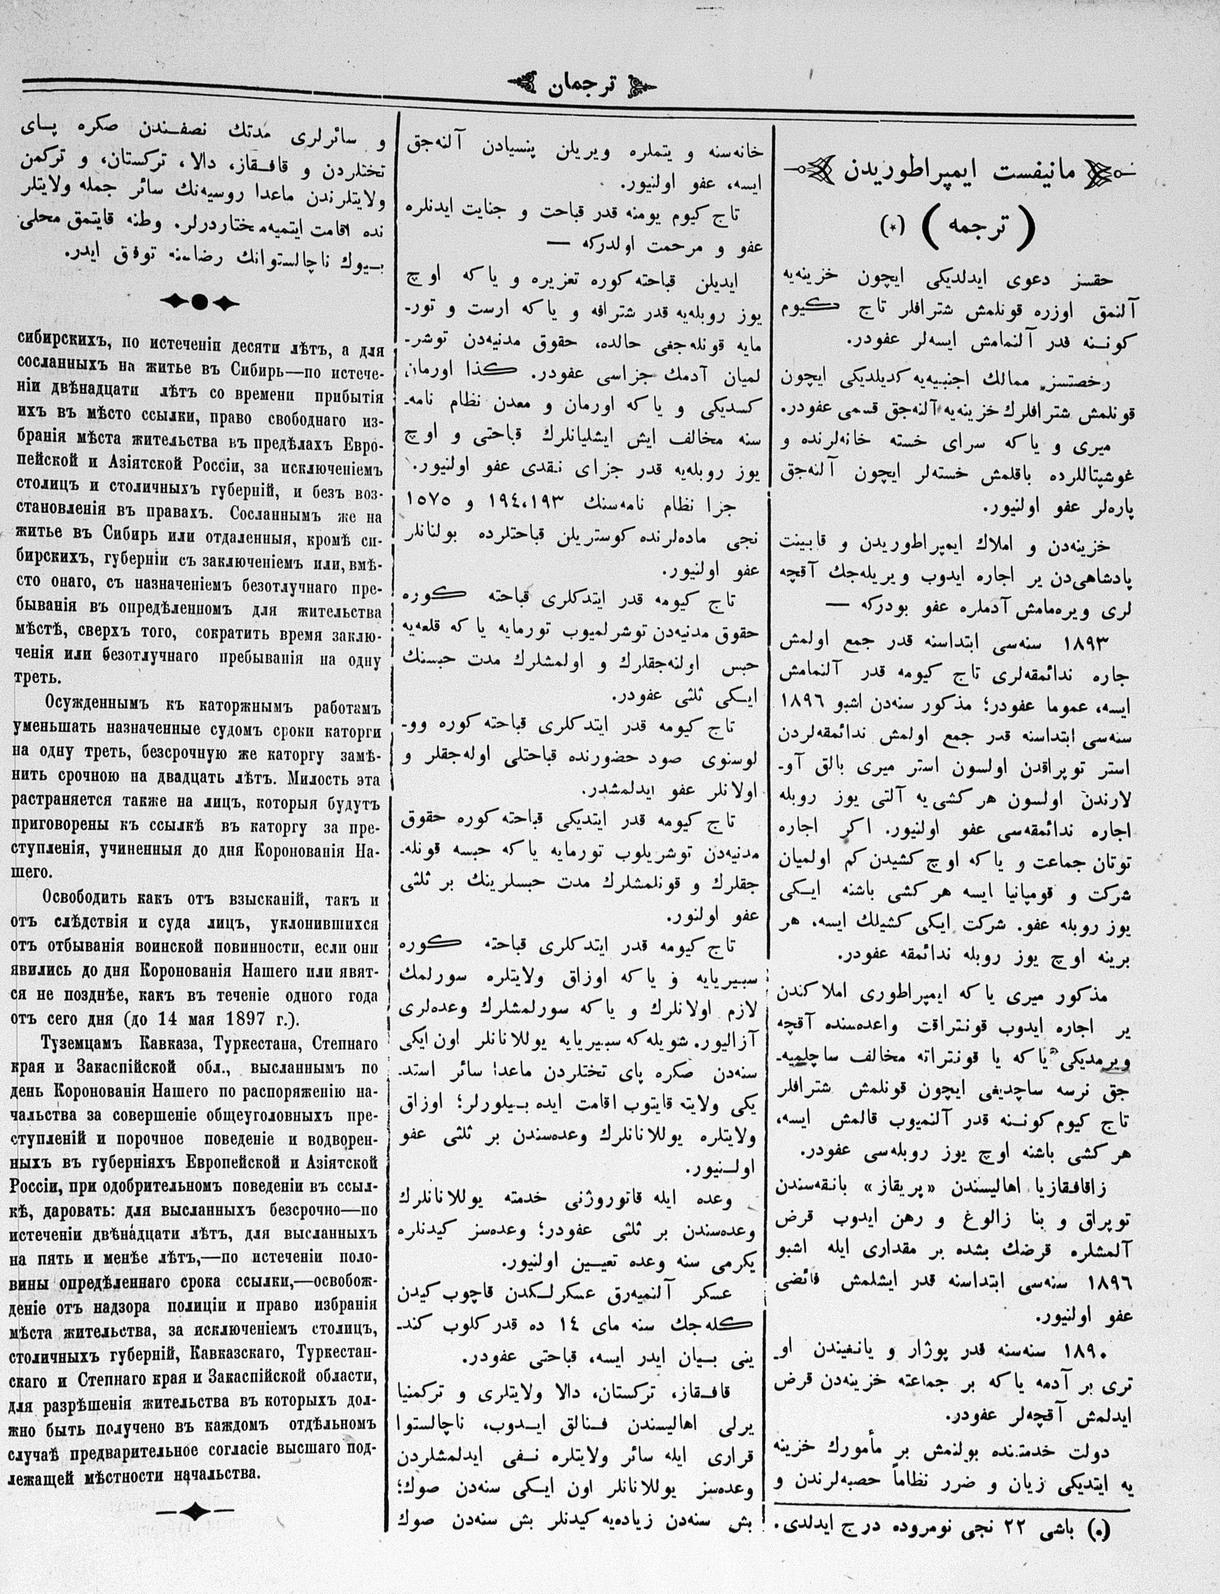 ترجمان
مانیفست ایمپراطوریدن
( ترجمه ) (٭)
حقسز دعوی ایدلدیکی ایچون خزینه‌یه
آلنمق اوزره قونلمش شترافلر تاج کیوم
کوننه قدر آلنمامش ایسه‌لر عفودر.
رخصتسز ممالك اجنبیه‌یه کدیلدیکی ایچون
قونلمش شترافلرك خزینه‌یه آلنه‌جق قسمی عفودر.
میری و یا که سرای خسته خانه‌لرنده و
غوشپتاللرده باقلمش خسته‌لر ایچون آلنه‌جق
پاره‌لر عفو اولنیور.
خزینه‌دن و املاك ایمپراطوریدن و قابینت
پادشاهی‌دن یر اجاره ایدوب ویریله‌جك آقچه
لری ویره‌مامش آدملره عفو بودرکه —
۱۸۹۳ سنه‌سی ابتداسنه قدر جمع اولمش
جاره ندائمقه‌لری تاج کیومه قدر آلنمامش
ایسه، عموما عفودر؛ مذکور سنه‌دن اشبو ۱۸۹٦
سنه‌سی ابتداسنه قدر جمع اولمش ندائمقه‌لردن
استر توپراقدن اولسون استر میری بالق آو-
لارندن اولسون هر کشی‌یه آلتی یوز روبله
اجاره ندائمقه‌سی عفو اولنیور. اکر اجاره
توتان جماعت و یا که اوچ کشیدن کم اولمیان
شرکت و قومپانیا ایسه هر کشی باشنه ایکی
یوز روبله عفو. شرکت ایکی کشیلك ایسه، هر
برینه اوچ یوز روبله ندائمقه عفودر.
مذکور میری یا که ایمپراطوری املاکندن
یر اجاره ایدوب قونتراقت واعده‌سنده آقچه
ویرمدیکی یا که یا قونتراته مخالف ساچلمیه-
جق نرسه ساچدیغی ایچون قونلمش شترافلر
تاج کیوم کوننه قدر آلنمیوب قالمش ایسه،
هر کشی باشنه اوچ یوز روبله‌سی عفودر.
زاقافقازیا اهالیسندن «پریقاز» بانقه‌سندن
توپراق و بنا زالوغ و رهن ایدوب قرض
آلمشلره قرضك بشده بر مقداری ایله اشبو
۱۸۹٦ سنه‌سی ابتداسنه قدر ایشلمش فائضی
عفو اولنیور.
۱۸۹۰ سنه‌سنه قدر پوژار و یانغیندن او-
تری بر آدمه یا که بر جماعته خزینه‌دن قرض
ایدلمش آقچه‌لر عفودر.
دولت خدمتنده بولنمش بر مأمورك خزینه
یه ایتدیکی زیان و ضرر نظاماً حصبه‌لرندن و
(٭) باشی ۲۲ نجی نومروده درج ایدلدی.
خانه‌سنه و یتملره ویریلن پنسیادن آلنه‌جق
ایسه، عفو اولنیور.
تاج کیوم یومنه قدر قباحت و جنایت ایدنلره
عفو و مرحمت اولدرکه —
ایدیلن قباحته کوره تعزیره و یا که اوچ
یوز روبله‌یه قدر شترافه و یا که ارست و تور-
مایه قونله‌جغی حالده، حقوق مدنیه‌دن توشر-
لمیان آدمك جزاسی عفودر. کذا اورمان
کسدیکی و یا که اورمان و معدن نظام نامه-
سنه مخالف ایش ایشلیانلرك قباحتی و اوچ
یوز روبله‌یه قدر جزای نقدی عفو اولنیور.
جزا نظام نامه‌سنك ۱۹۳،۱۹٤ و ۱۵۷۵
نجی ماده‌لرنده کوستریلن قباحتلرده بولنانلر
عفو اولنیور.
تاج کیومه قدر ایتدکلری قباحته کوره
حقوق مدنیه‌دن توشرلمیوب تورمایه یا که قلعه‌یه
حبس اولنه‌جقلرك و اولمشلرك مدت حبسنك
ایکی ثلثی عفودر.
تاج کیومه قدر ایتدکلری قباحته کوره وو-
لوسنوی صود حضورنده قباحتلی اوله‌جقلر و
اولانلر عفو ایدلمشدر.
تاج کیومه قدر ایتدیکی قباحته کوره حقوق
مدنیه‌دن توشریلوب تورمایه یا که حبسه قونله-
جقلرك و قونلمشلرك مدت حبسلرینك بر ثلثی
عفو اولنور.
تاج کیومه قدر ایتدکلری قباحته کوره
سبیریایه و یا که اوزاق ولایتلره سورلمك
لازم اولانلرك و یا که سورلمشلرك وعده‌لری
آزالیور. شویله که سبیریایه یوللانانلر اون ایکی
سنه‌دن صکره پای تختلردن ماعدا سائر استد-
یکی ولایته قایتوب اقامت ایده بیلورلر؛ اوزاق
ولایتلره یوللانانلرك وعده‌سندن بر ثلثی عفو
اولنیور.
وعده ایله قاتوروژنی خدمته یوللانانلرك
وعده‌سندن بر ثلثی عفودر؛ وعده‌سز کیدنلره
یکرمی سنه وعده تعیین اولنیور.
عسکر آلنمیه‌رق عسکرلکدن قاچوب کیدن
کله‌جك سنه مای ۱٤ ده قدر کلوب کند-
ینی بیان ایدر ایسه، قباحتی عفودر.
قافقاز، ترکستان، دالا ولایتلری و ترکمنیا
یرلی اهالیسندن فنالق ایدوب، ناچالستوا
قراری ایله سائر ولایتلره نفی ایدلمشلردن
وعده‌سز یوللانانلر اون ایکی سنه‌دن صوك؛
بش سنه‌دن زیاده‌یه کیدنلر بش سنه‌دن صوك
و سائرلری مدتك نصفندن صکره پای
تختلردن و قافقاز، دالا، ترکستان، و ترکمن
ولایتلرندن ماعدا روسیه‌نك سائر جمله ولایتلر
نده اقامت ایتمیه مختاردرلر. وطنه قایتمق محلی
بیوك ناچالستوانك رضاسنه توفق ایدر.
сибирскихъ, по истеченіи десяти лѣтъ, а для
сосланныхъ на житье въ Сибирь—по истече-
ніи двѣнадцати лѣтъ со времени прибытія
ихъ въ мѣсто ссылки, право свободнаго из-
бранія мѣста жительства въ предѣлахъ Евро-
пейской и Азіятской Россіи, за исключеніемъ
столицъ и столичныхъ губерній, и безъ воз-
становленія въ правахъ. Сосланнымъ же на
житье въ Сибирь или отдаленныя, кромѣ си-
бирскихъ, губерніи съ заключеніемъ или, вмѣ-
сто онаго, съ назначеніемъ безотлучнаго пре-
быванія въ опредѣленномъ для жительства
мѣстѣ, сверхъ того, сократить время заклю-
ченія или безотлучнаго пребыванія на одну
треть.
Осужденнымъ къ каторжнымъ работамъ
уменьшать назначенные судомъ сроки каторги
на одну треть, безсрочную же каторгу замѣ-
нить срочною на двадцать лѣтъ. Милость эта
растраняется также на лицъ, которыя будутъ
приговорены къ ссылкѣ въ каторгу за пре-
ступленія, учиненныя до дня Коронованія На-
шего.
Освободить какъ отъ взысканій, такъ и
отъ слѣдствія и суда лицъ, уклонившихся
отъ отбыванія воинской повинности, если они
явились до дня Коронованія Нашего или явят-
ся не позднѣе, какъ въ теченіе одного года
отъ сего дня (до 14 мая 1897 г.).
Туземцамъ Кавказа, Туркестана, Степнаго
края и Закаспійской обл., высланнымъ по
день Коронованія Нашего по распоряженію на-
чальства за совершеніе общеуголовныхъ пре-
ступленій и порочное поведеніе и водворен-
ныхъ въ губерніяхъ Европейской и Азіятской
Россіи, при одобрительномъ поведеніи въ ссыл-
кѣ, даровать: для высланныхъ безсрочно—по
истеченіи двѣнадцати лѣтъ, для высланныхъ
на пять и менѣе лѣтъ,—по истеченіи поло-
вины опредѣленнаго срока ссылки,—освобож-
деніе отъ надзора полиціи и право избранія
мѣста жительства, за исключеніемъ столицъ,
столичныхъ губерній, Кавказскаго, Туркестан-
скаго и Степнаго края и Закаспійской области,
для разрѣшенія жительства въ которыхъ дол-
жно быть получено въ каждомъ отдѣльномъ
случаѣ предварительное согласіе высшаго под-
лежащей мѣстности начальства.